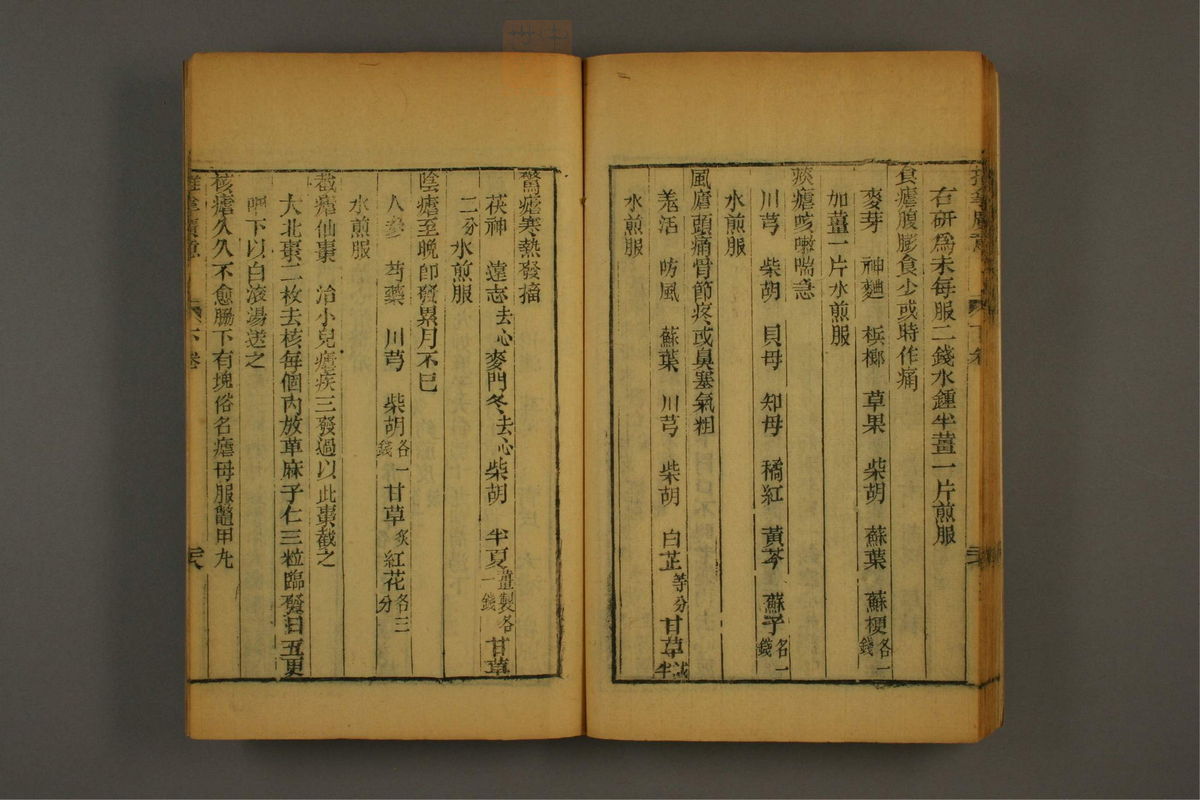 右研爲末每服二錢水鍾半薑一片煎服
食瘧腹膨食少或時作痛
麥芽　神麯　梹榔　草果　柴胡　蘇葉　蘇梗各一錢
加薑一片水煎服
痰瘧咳嗽喘急
川芎　柴胡　貝母　知母　橘紅　黃芩　蘇子各一錢
水煎服
風瘧頭痛骨節疼或鼻塞氣粗
羗活　防風　蘇葉　川芎　柴胡　白芷等分甘草减半
水煎服
驚瘧寒熱發搐
茯神　遠志去心麥門冬去心柴胡　半夏薑製各一錢甘草
二分水煎服
陰瘧至晚卽發累月不已
人參　芍藥　川芎　柴胡各一錢甘草炙紅花各三分
水煎服
截瘧仙棗　治小兒瘧疾三發過以此棗截之
大北棗二枚去核每個內放草麻子仁三粒臨發日五更
嚼下以白滚湯送之
痎瘧久久不愈腸下有塊俗名瘧母服鼈甲丸
下卷